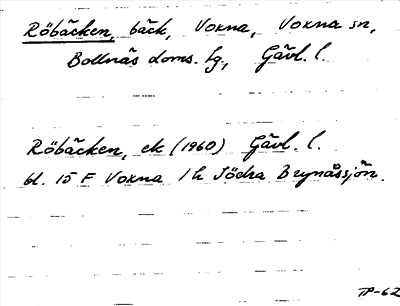 Röbäcken, bäck, Voxna, Voxna sn,
Bollnäs doms. hg., Gävl. l.
Röbäcken, ek (1960) Gävl. l.
bl. 15 F Voxna 1 h Södra Brynåssjön.
TP-62